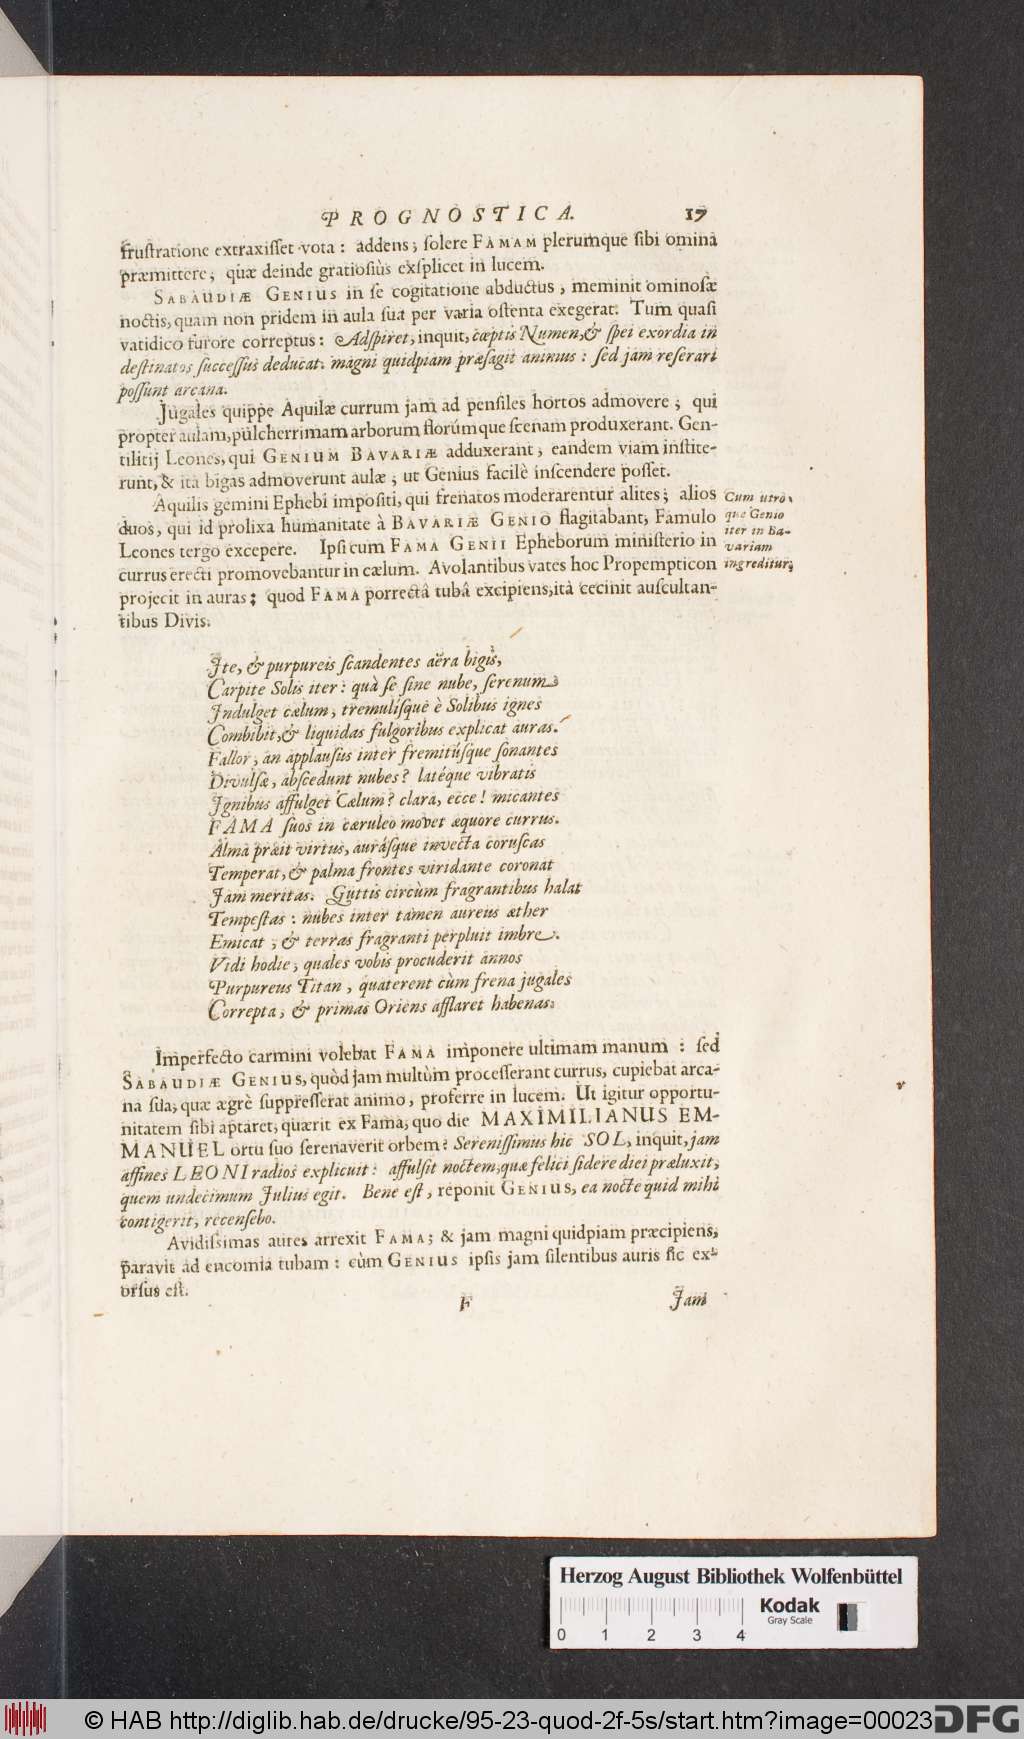 PROGNOSTICA. 17
frustratione extraxisset vota: addens; solere FAMAM plerumque sibi omina
præmittere; quæ deinde gratiosiùs exsplicet in lucem.
SABAUDIÆ GENIUS in se cogitatione abductus, meminit ominosæ
noctis, quam non pridem in aula sua per varia ostenta exegerat. Tum quasi
vatidico furore correptus: Adspiret, inquit, cœptis Numen, & spei exordia in
destinatos successus deducat: magni quidpiam præsagit animus: sed jam reserari
possunt arcana.
Jugales quippe Aquilæ currum jam ad pensiles hortos admovere; qui
propter aulam, pulcherrimam arborum florúmque scenam produxerant. Gen-
tilitij Leones, qui GENIUM BAVARIÆ adduxerant, eandem viam institе-
runt, & ita bigas admoverunt aulæ; ut Genius facilè inscendere posset.
Aquilis gemini Ephebi impositi, qui frenatos moderarentur alites; alios
duos, qui id prolixa humanitate à BAVARIÆ GENIO flagitabant, Famulo
Leones tergo excepere. Ipsi cum FAMA GENII Epheborum ministerio in
currus erecti promovebantur in cælum. Avolantibus vates hoc Propempticon
projecit in auras: quod FAMA porrectâ tubâ excipiens, ità cecinit auscultan-
tibus Divis.
Cum utro-
que Genio
iter in Ba-
variam
ingreditur;
Ite, & purpureis scandentes aëra bigis,
Carpite Solis iter: quà se sine nube, serenum
Indulget cælum, tremulisque è Solibus ignes
Combibit, & liquidas fulgoribus explicat auras.
Fallor, an applausus inter fremitúsque sonantes
Divulsæ, abscedunt nubes? latéque vibratis
Ignibus affulget Cælum? clara, ecce! micantes
FAMA suos in cæruleo movet æquore currus.
Alma præit virtus, aurásque invecta coruscas
Temperat, & palma frontes viridante coronat
Jam meritas. Guttis circùm fragrantibus halat
Tempestas: nubes inter tamen aureus æther
Emicat, & terras fragranti perpluit imbre.
Vidi hodie, quales vobis procuderit annos
Purpureus Titan, quaterent cùm frena jugales
Correpta, & primas Oriens afflaret habenas.
Imperfecto carmini volebat FAMA imponere ultimam manum: sed
SABAUDIÆ GENIUS, quòd jam multùm processerant currus, cupiebat arca-
na sua, quæ ægrè suppresserat animo, proferre in lucem. Ut igitur opportu-
nitatem sibi aptaret, quærit ex Fama, quo die MAXIMILIANUS EM-
MANUEL ortu suo serenaverit orbem? Serenissimus hic SOL, inquit, jam
affines LEONI radios explicuit: affulsit noctem, quæ felici sidere diei præluxit,
quem undecimum Julius egit. Bene est, reponit GENIUS, ea nocte quid mihi
contigerit, recensebo.
Avidissimas aures arrexit FAMA; & jam magni quidpiam præcipiens,
paravit ad encomia tubam: cùm GENIUS ipsis jam silentibus auris sic ex-
orsus est.
F Jam
Herzog August Bibliothek Wolfenbüttel
Kodak
Gray Scale
0 1 2 3 4
© HAB http://diglib.hab.de/drucke/95-23-quod-2f-5s/start.htm?image=00023
DFG